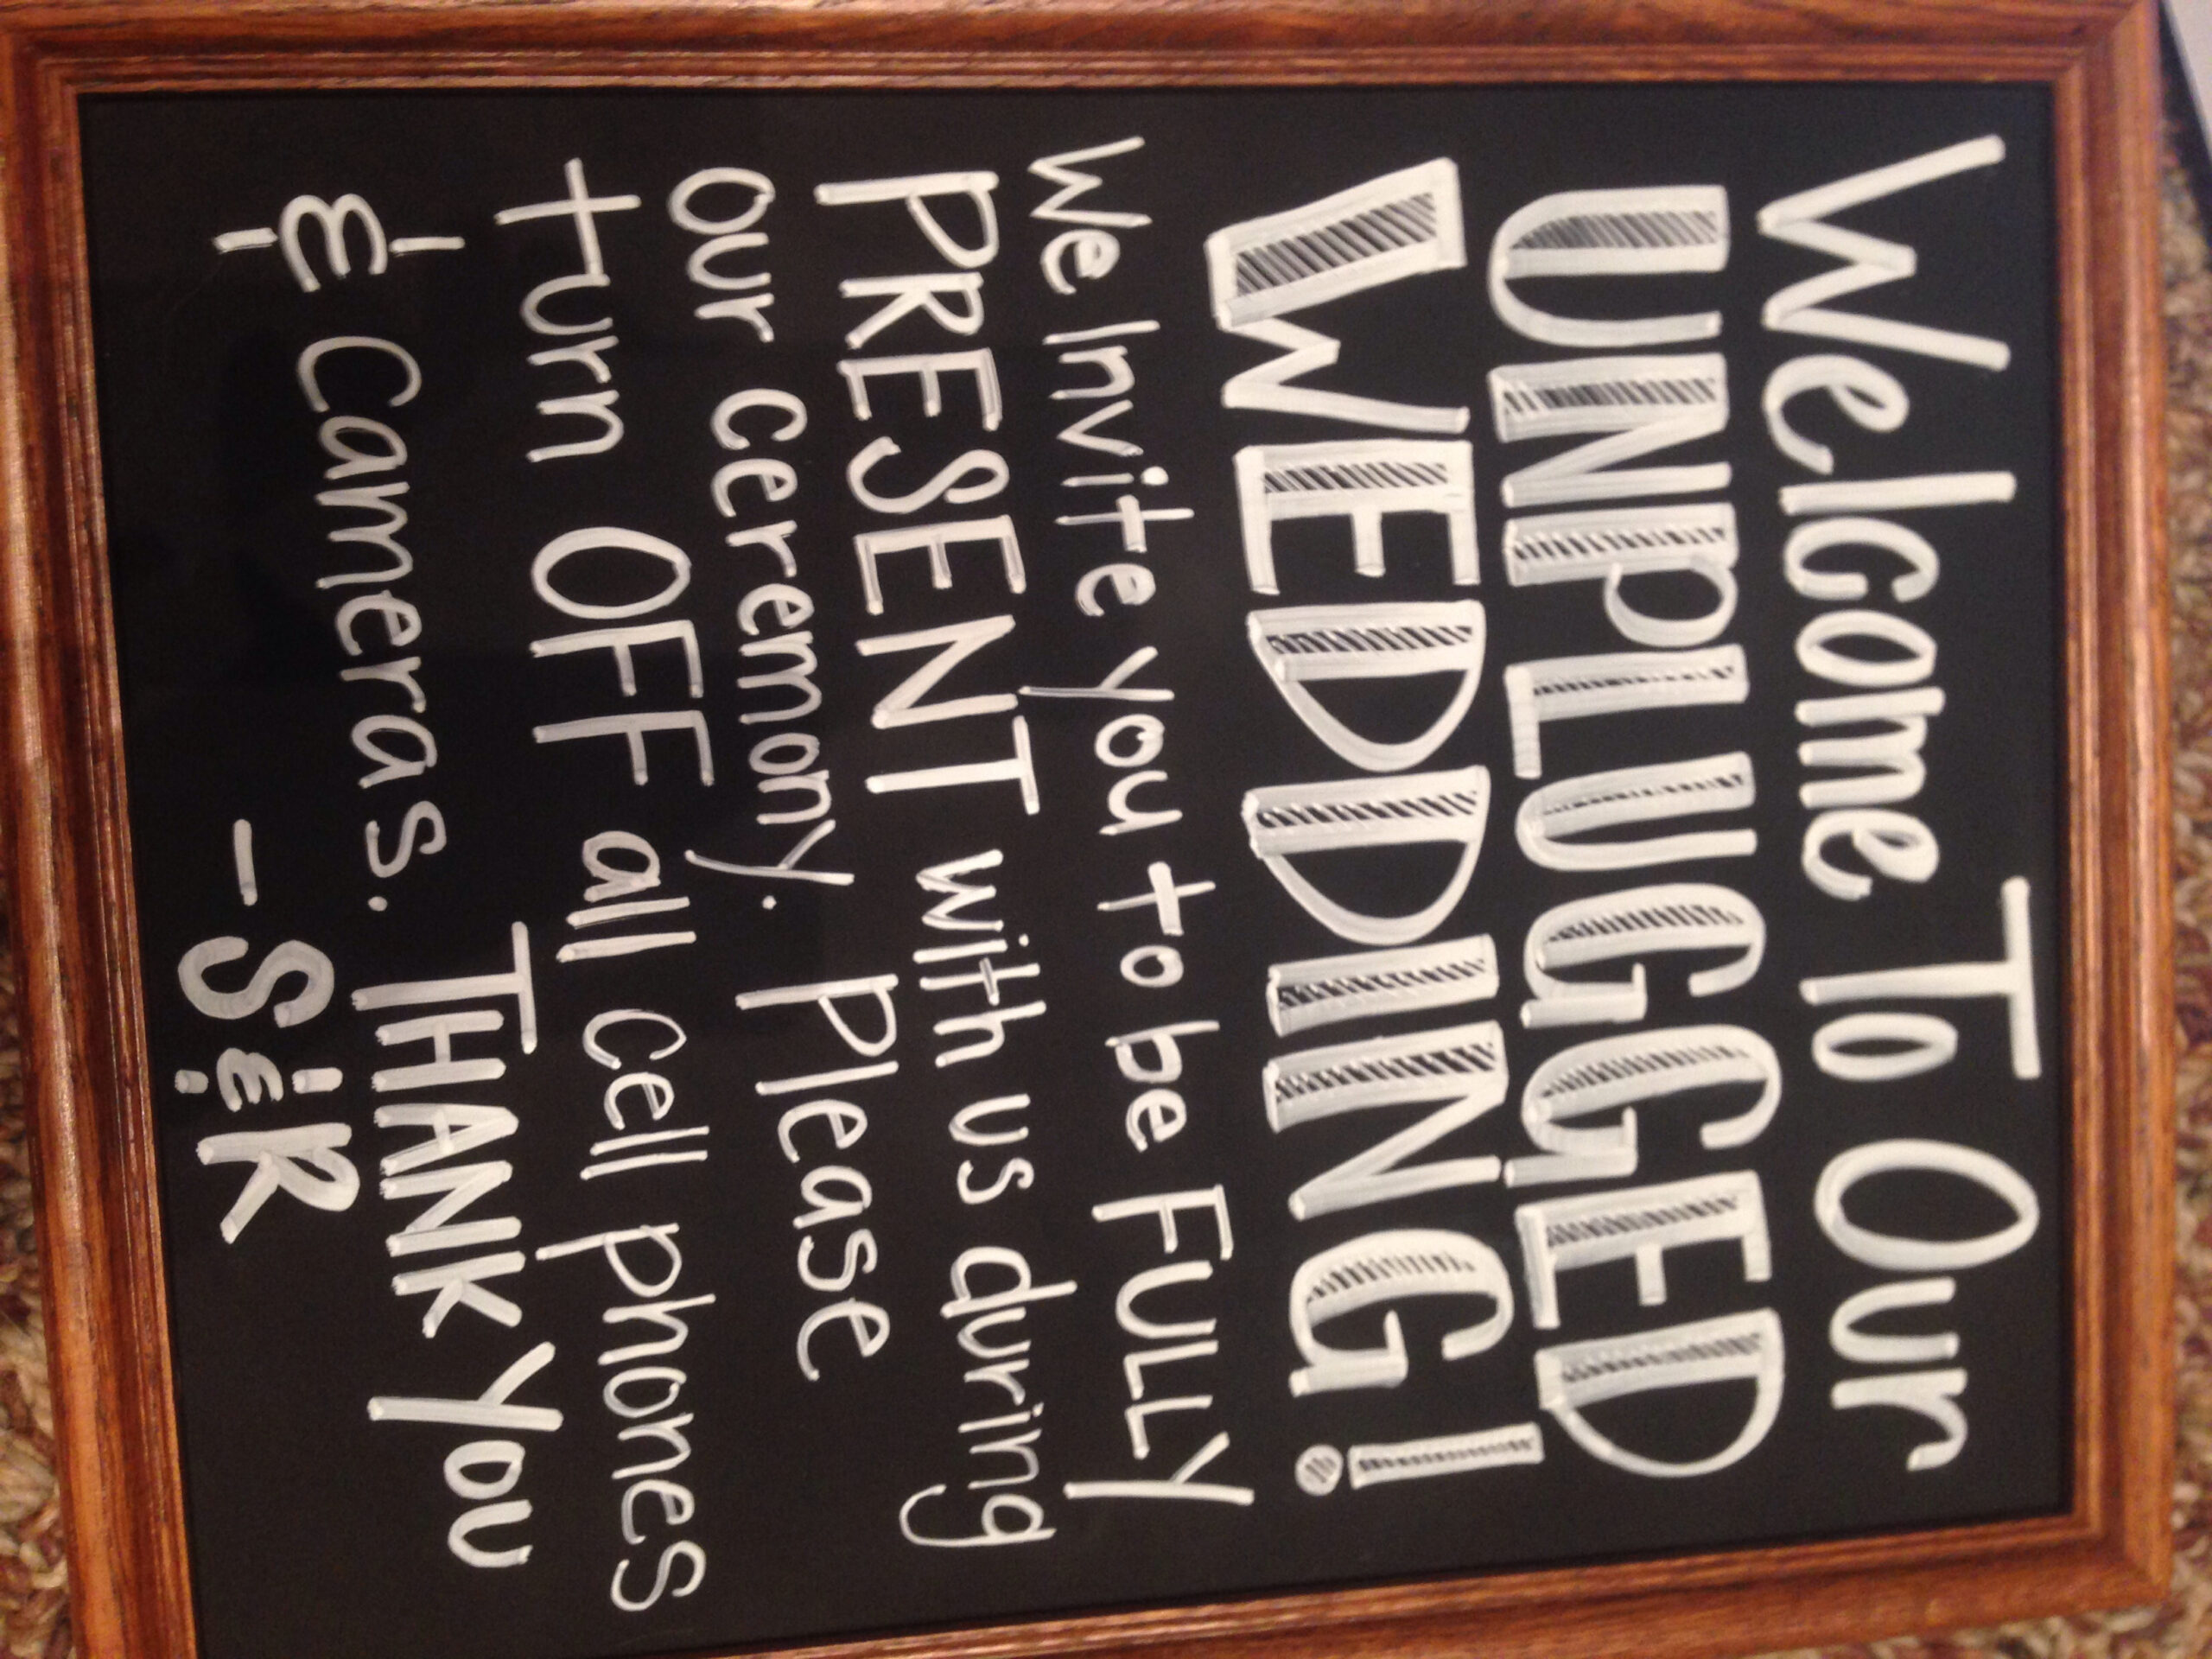 Welcome To Our
UNPLUGGED
WEDDING!
We Invite you to be FULLY
PRESENT with us during
our ceremony. Please
turn OFF all cell phones
& cameras. THANK YOU
- S & R